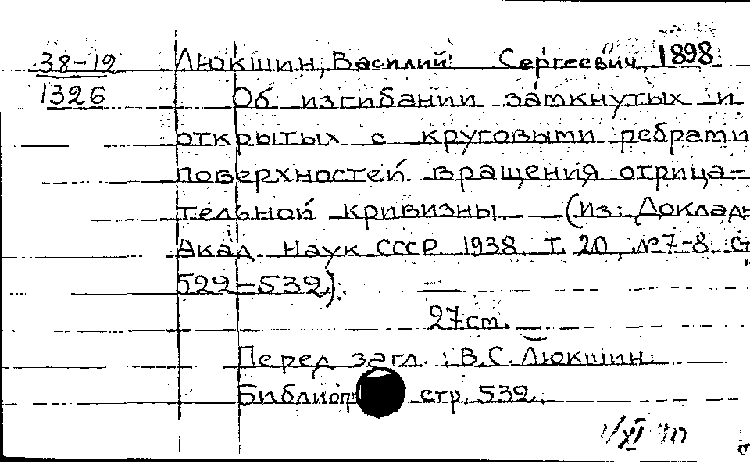 38-19 Люкшин, Василий Сергеевич, 1898
1326 Об изгибании замкнутых и
открытых с круговыми ребрами
поверхностей вращения отрица-
тельной кривизны (Из: Доклады
Акад. Наук СССР 1938. Т. 20, №7-8. Ст
529-532).
27 cm.
Перед загл.: В.С. Люкшин.
Библиогр стр. 532.
1/XI